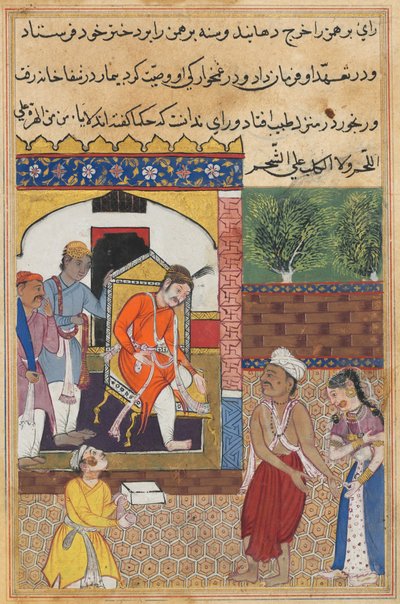 رای برهمن را خرج دهانید و سه برهمن را بر دختر خود فرستاد
و در تعهد او فرمان داد و در غمخوارکی او وصیت کرد بیمار در شفاخانه رفت
و رنجور در منزل طبیب افتاد و رای ندانست که حکما کفته اند لا یامن من الهر علی
اللحم ولا الکلب علی الشحم